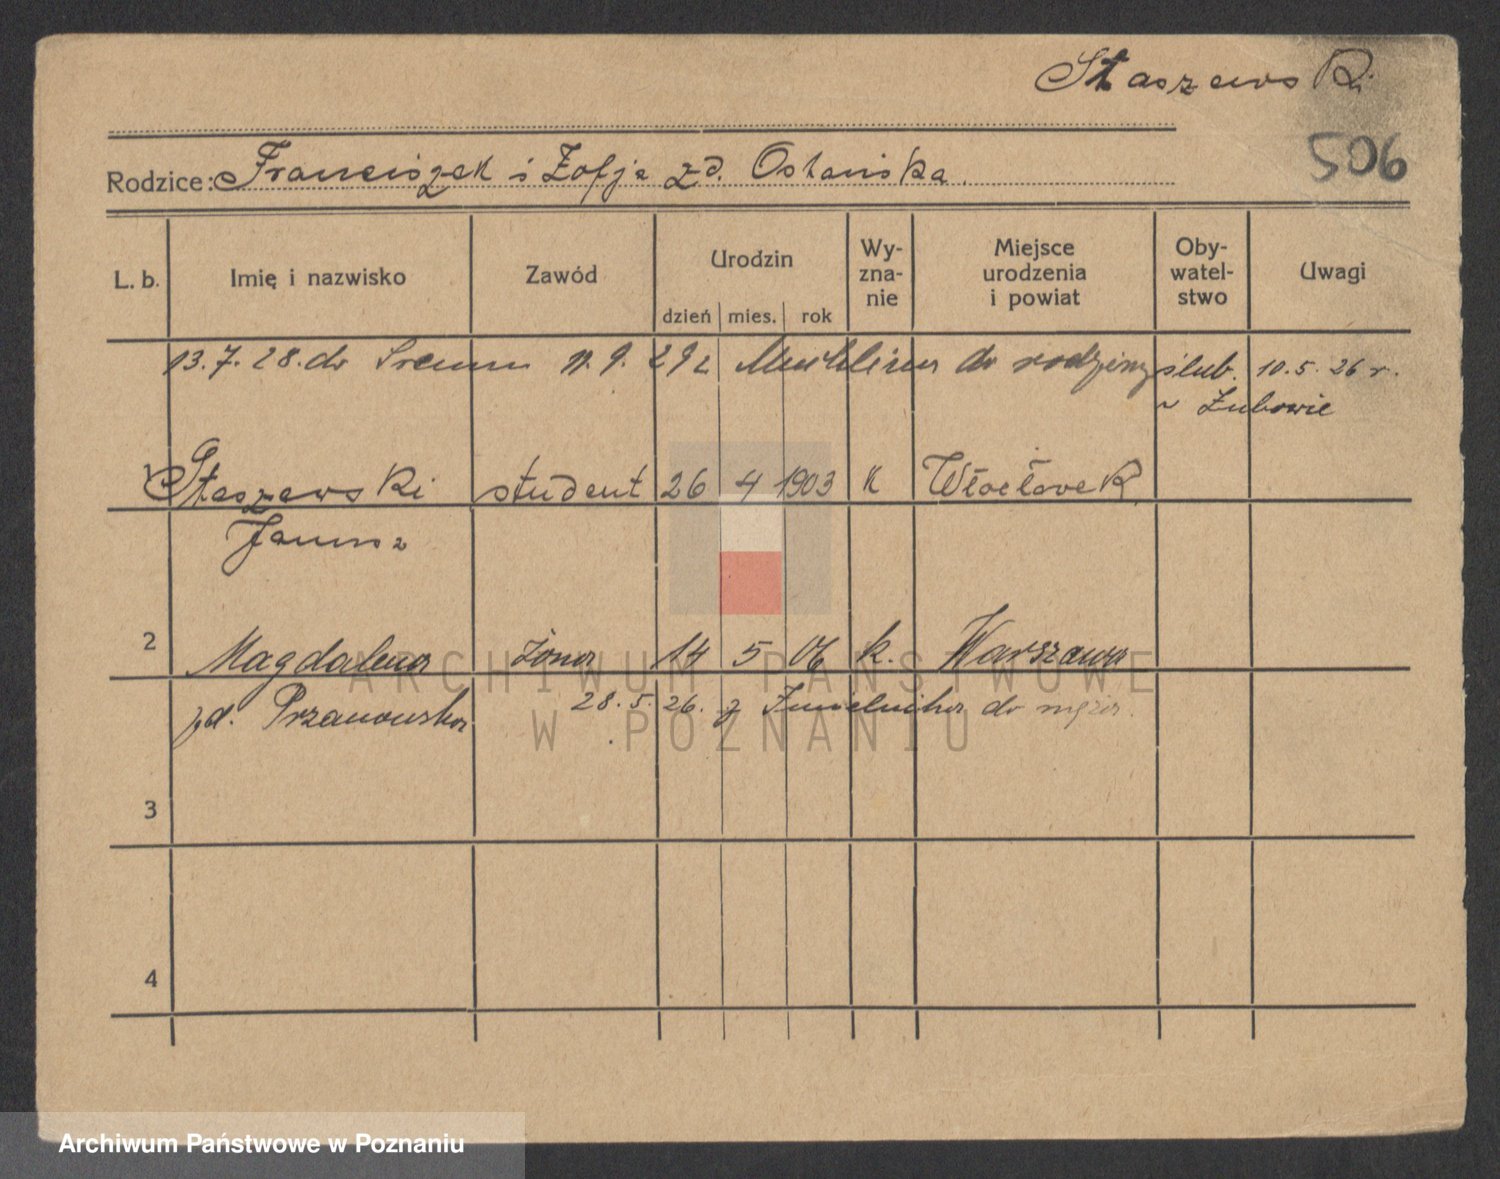 Staszewski
506
Rodzice: Franciszek i Zofja zd. Ostańska.
L. b. Imię i nazwisko Zawód Urodzin dzień mies. rok Wyzna-nie Miejsce urodzenia i powiat Oby-watel-stwo Uwagi
13.7.28. do Śremu do rodziny ślub. 10.5.26 r.
w Żubowie
1 Staszewski student 26 4 1903 k Włocławek
Janusz
2 Magdalena żona 14 5 06 k. Warszawa
zd. Przanowska 28.5.26. z do męża.
3
4
ARCHIWUM PAŃSTWOWE
W POZNANIU
Archiwum Państwowe w Poznaniu